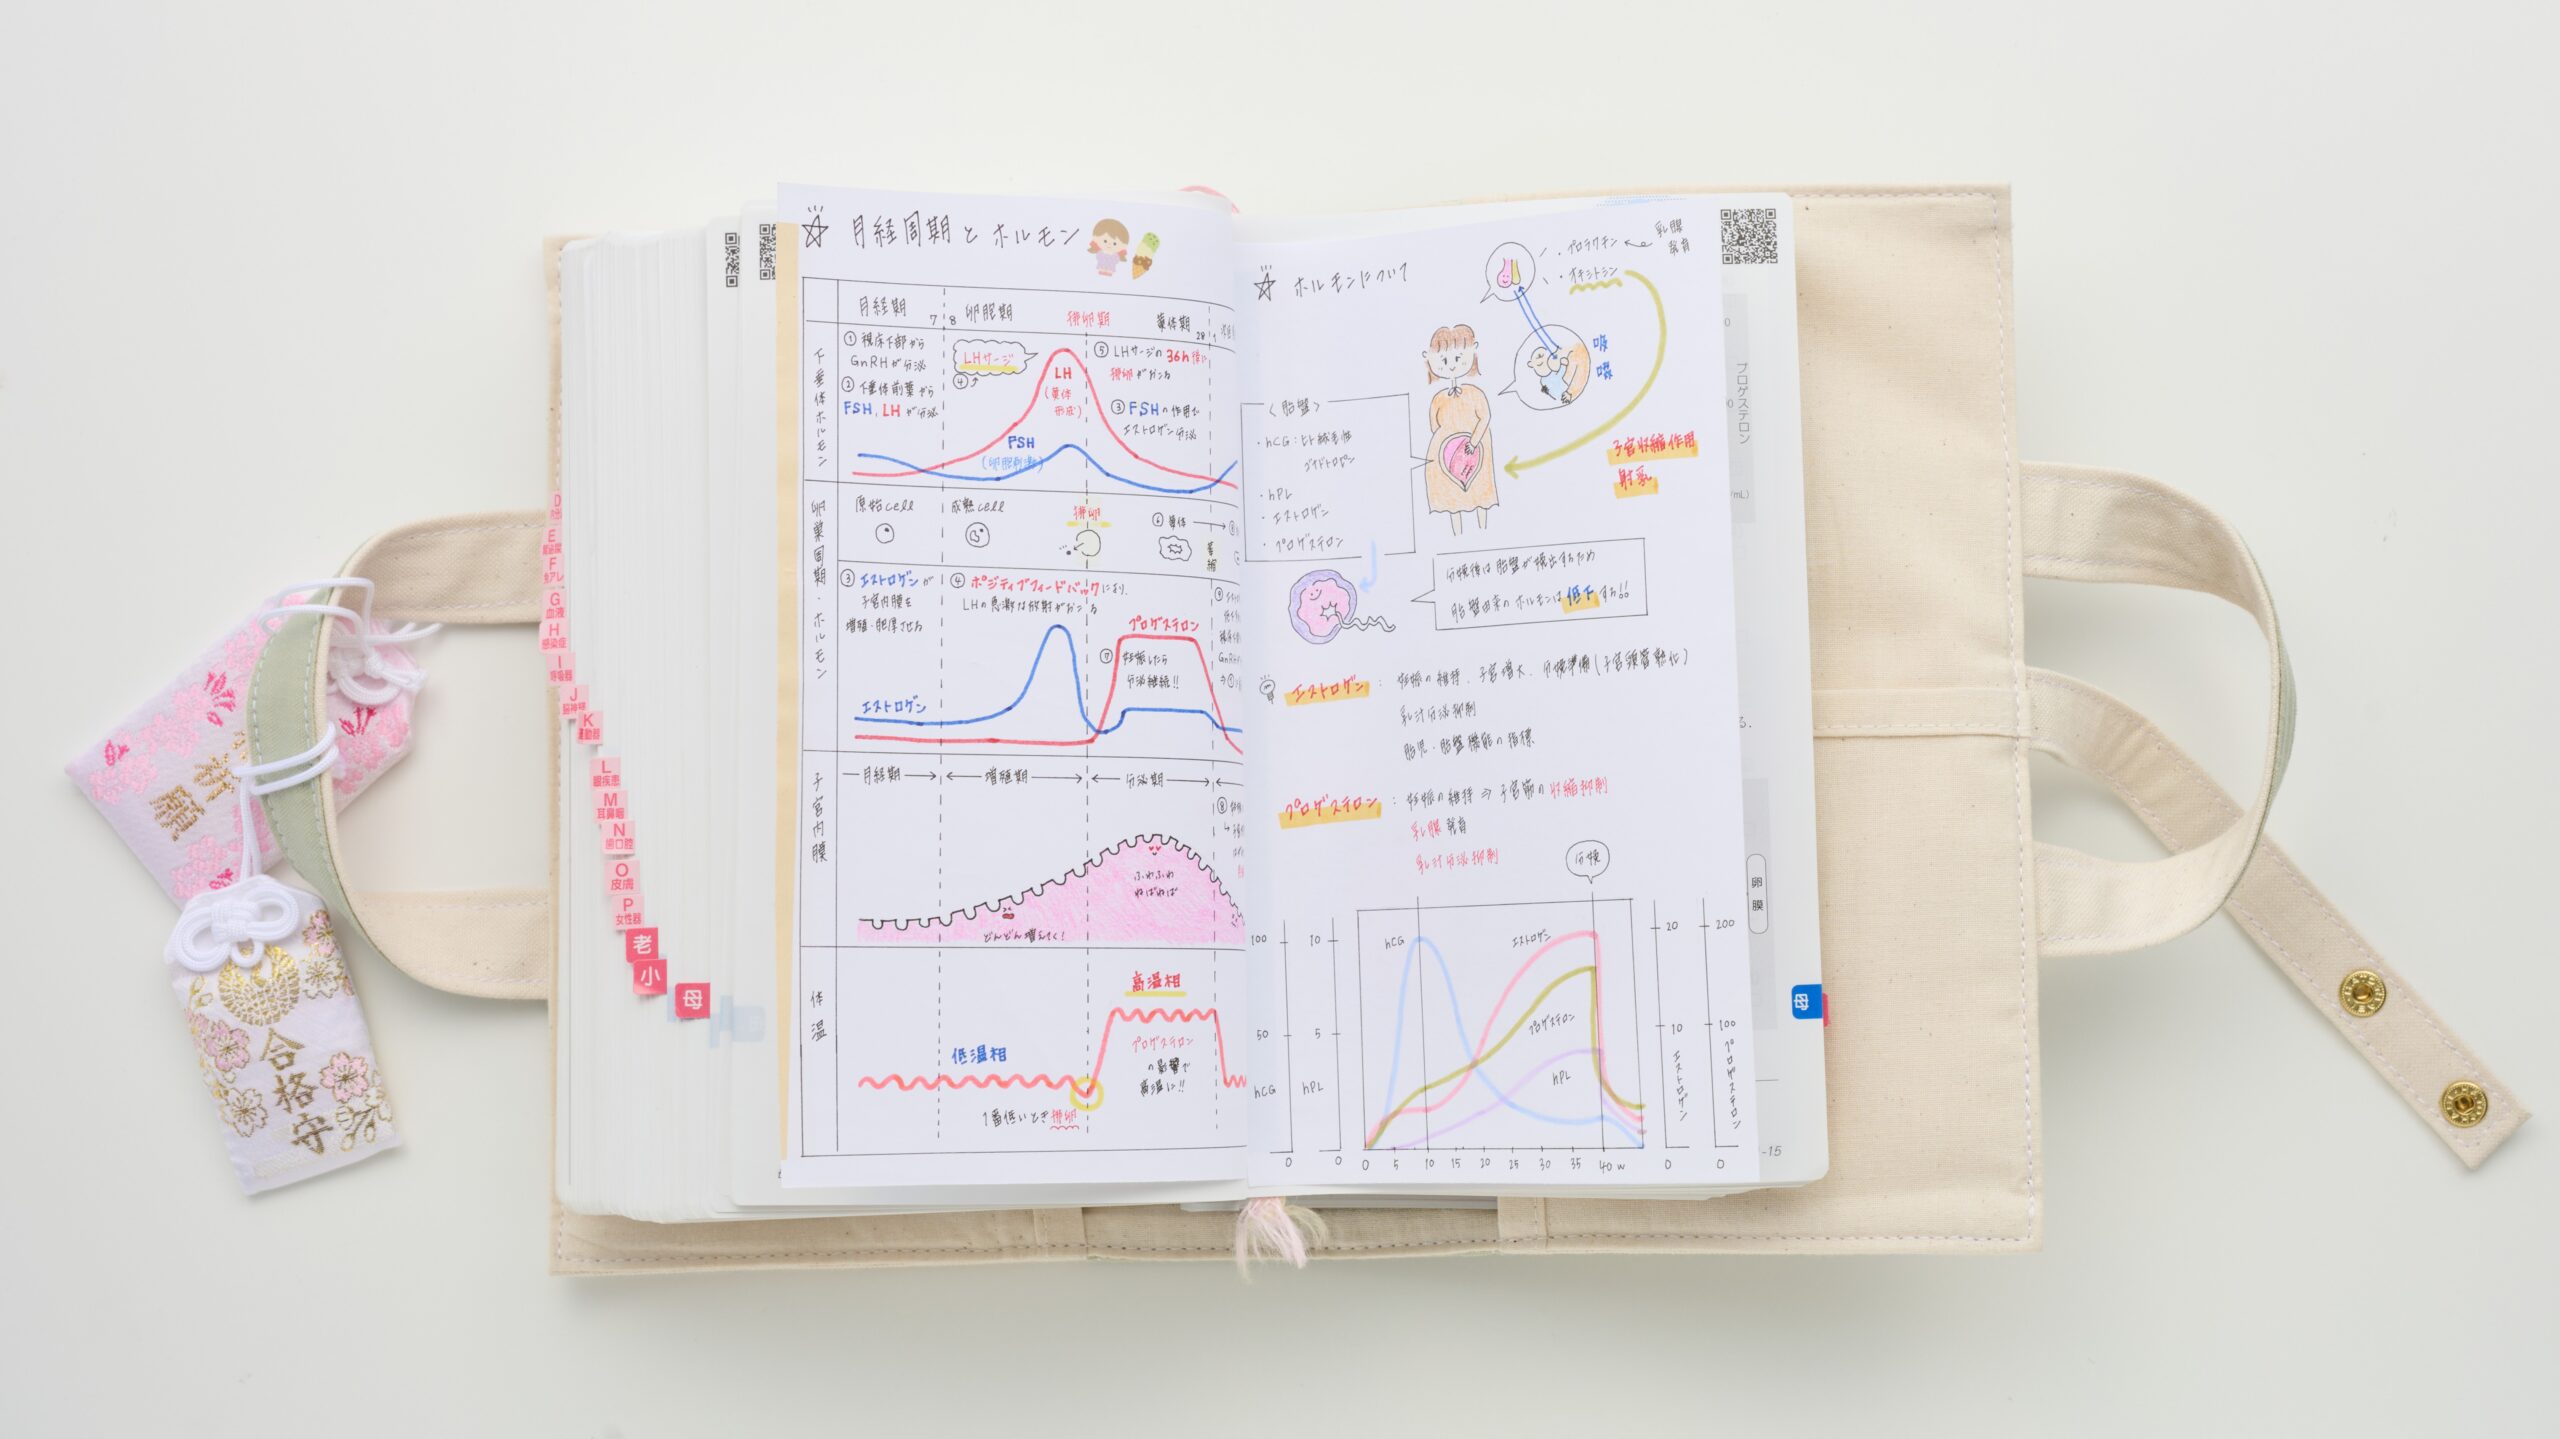 月経周期とホルモン
月経期
7
8
卵胞期
排卵期
黄体期
28
1
下垂体ホルモン
① 視床下部から
GnRHが分泌
② 下垂体前葉から
FSH, LHが分泌
LHサージ
④
LH
(黄体
形成)
FSH
(卵胞刺激)
⑤ LHサージの36h後に
排卵がおこる
③ FSHの作用で
エストロゲン分泌
卵巣周期・ホルモン
原始cell
成熟cell
排卵
⑥ 黄体
③ エストロゲンが
子宮内膜を
増殖・肥厚させる
④ ポジティブフィードバックにより、
LHの急激な放射がおこる
エストロゲン
プロゲステロン
⑦ 妊娠したら
分泌継続!!
子宮内膜
月経期
増殖期
分泌期
ふわふわ
ねばねば
どんどん増えてく!
体温
低温相
高温相
プロゲステロン
の影響で
高温に!!
1番低いとき排卵
ホルモンについて
・プロラクチン
乳腺
発育
・オキシトシン
吸
啜
子宮収縮作用
射乳
〈胎盤〉
・hCG:ヒト絨毛性
ゴナドトロピン
・hPL
・エストロゲン
・プロゲステロン
分娩後は胎盤が娩出するため
胎盤由来のホルモンは低下する!!
エストロゲン:妊娠の維持、子宮増大、分娩準備(子宮頸管軟化)
乳汁分泌抑制
胎児・胎盤機能の指標
プロゲステロン:妊娠の維持⇒子宮筋の収縮抑制
乳腺発育
乳汁分泌抑制
分娩
100
50
0
hCG
10
5
0
hPL
hCG
エストロゲン
プロゲステロン
hPL
0 5 10 15 20 25 30 35 40 w
20
10
0
エストロゲン
200
100
0
プロゲステロン
プロゲステロン
卵
膜
-15
母
D
E
F
G
血液
H
感染症
I
呼吸器
J
脳神経
K
運動器
L
眼疾患
M
耳鼻咽
N
歯口腔
O
皮膚
P
女性器
老
小
母
祈願
合格守